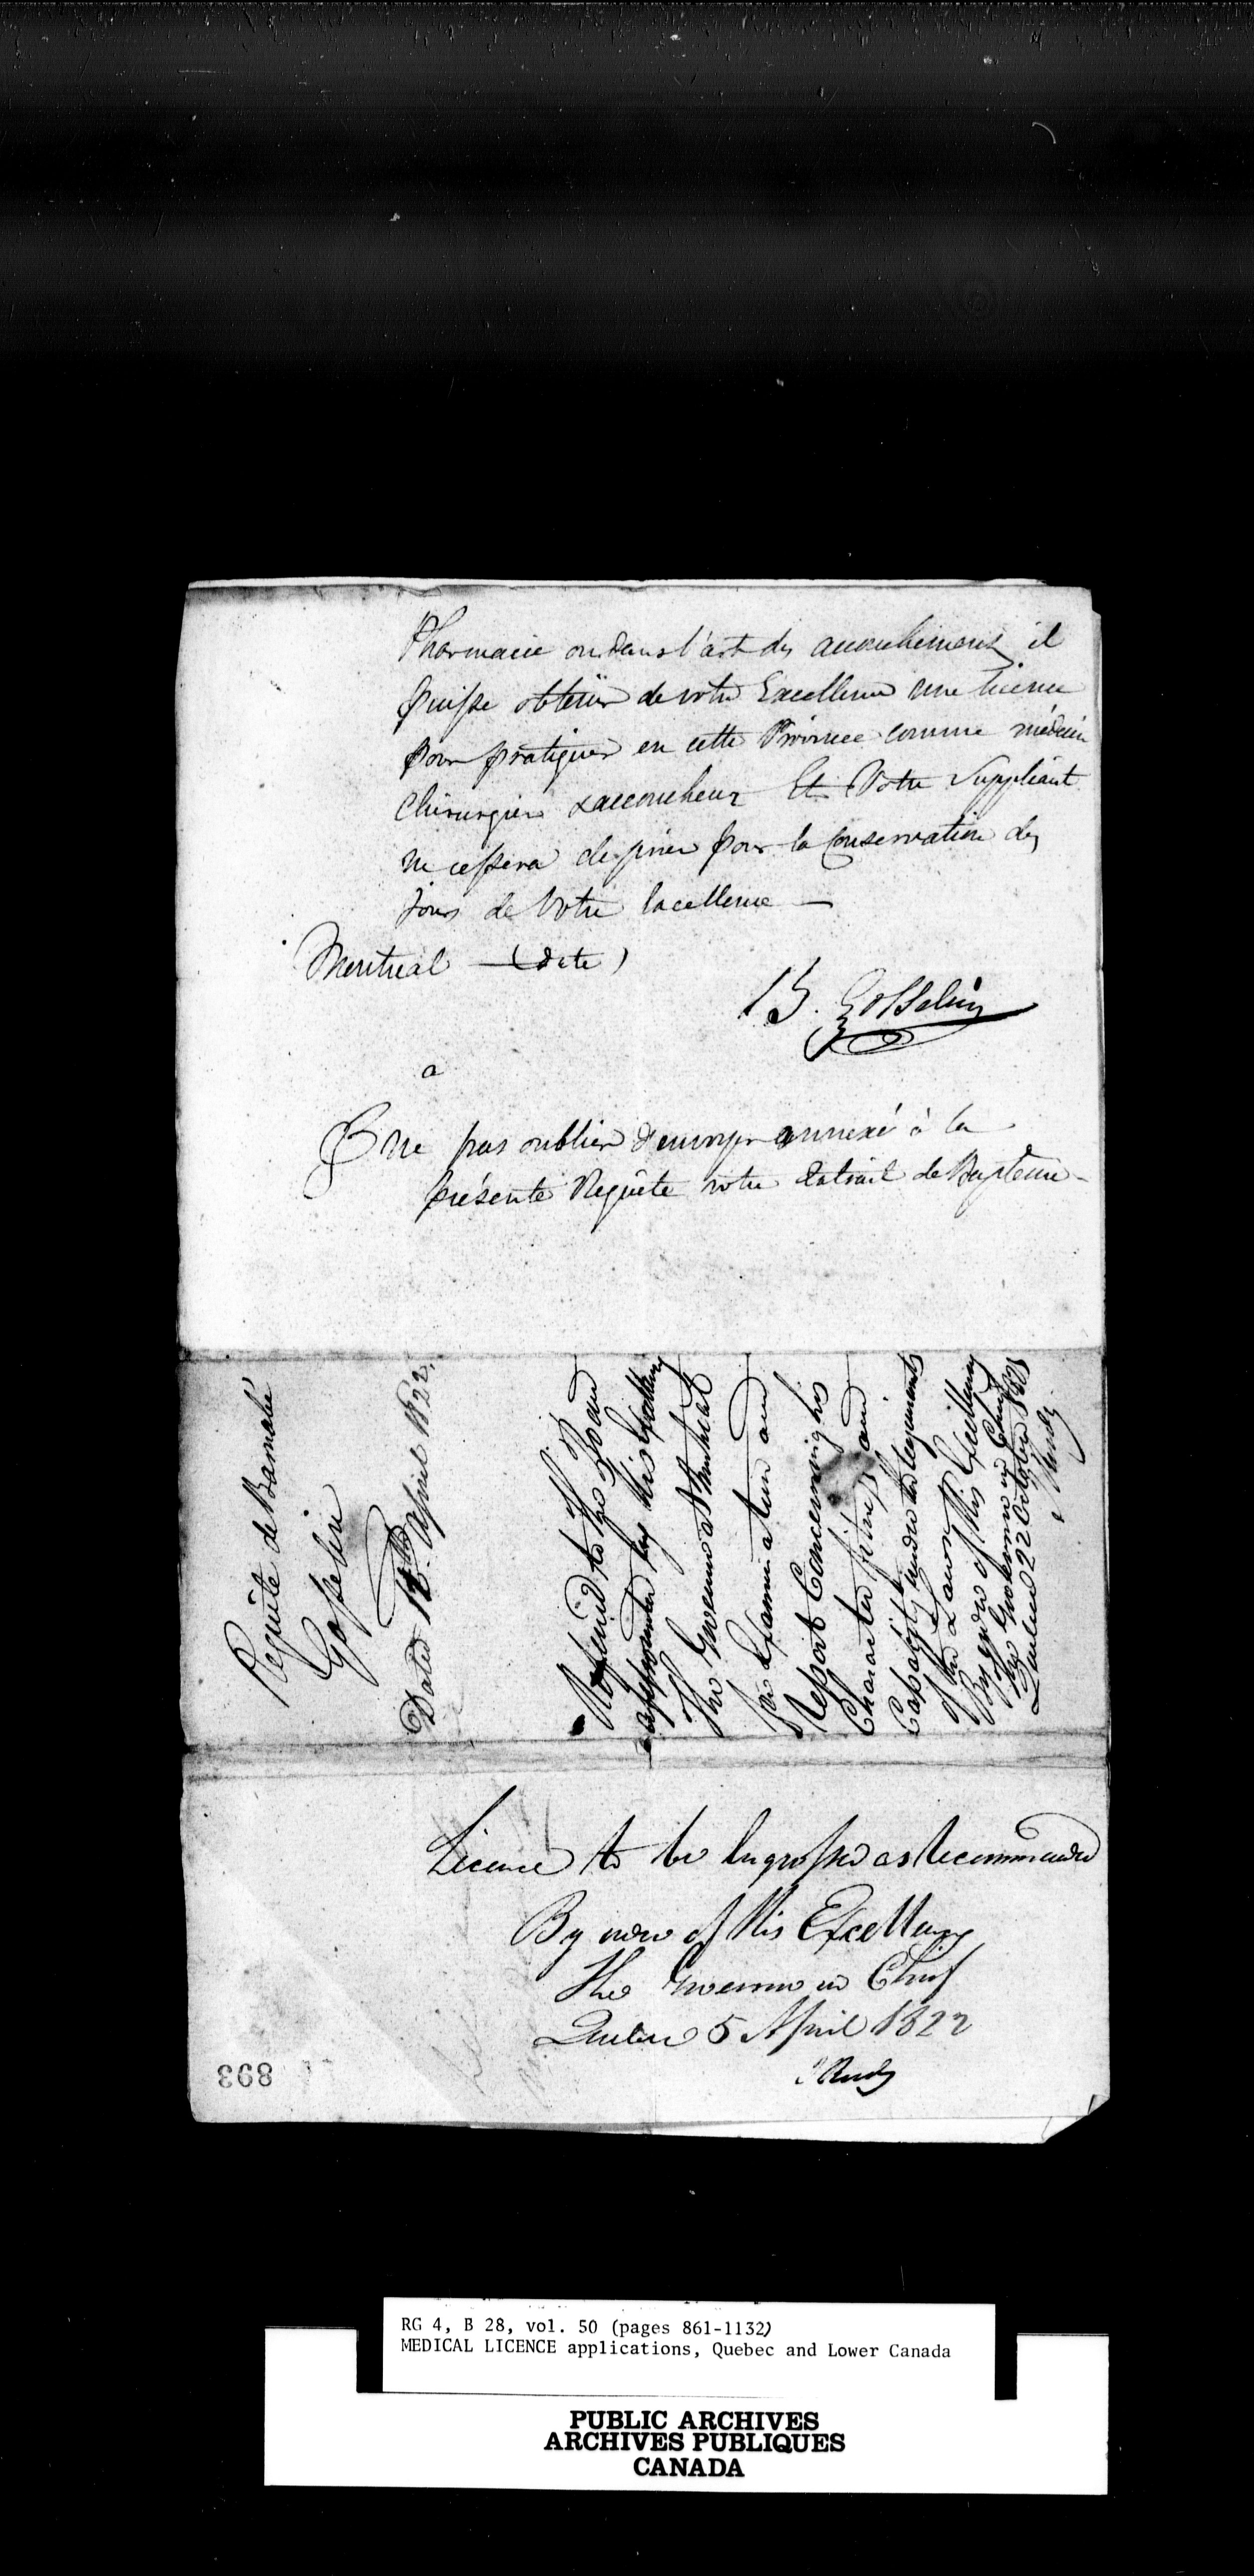 Pharmacie ou dans l'art des accouchements, il
puisse obtenir de votre Excellence une licence
pour pratiquer en cette Province comme médecin
Chirurgien & accoucheur Et Votre Suppliant
ne cessera de prier pour la Conservation des
jours de Votre Excellence —
Montreal — (date)
B. Gosselin
a
ne pas oublier d'envoyer annexé à la
présente Requête votre Extrait de Baptême
Requête de Barnabé
Gosselin
Dated April 1822
Referred to the Board
appointed by His Excellency
The Governor at Montreal
for Examination and
Report Concerning his
Character fitness and
Capacity under the requirements
of the Law
By order of His Excellency
the Governor in Chief
Quebec 22 October 1821
Licence to be Engrossed as Recommended
By order of His Excellency
The Governor in Chief
Quebec 5 April 1822
893
RG 4, B 28, vol. 50 (pages 861-1132)
MEDICAL LICENCE applications, Quebec and Lower Canada
PUBLIC ARCHIVES
ARCHIVES PUBLIQUES
CANADA